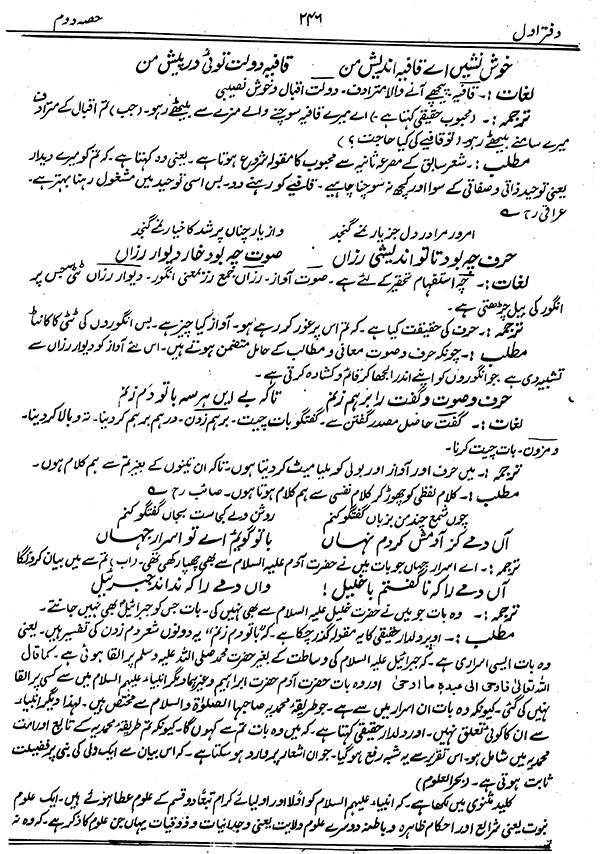 دفتر اول ۲۴۶ حصہ دوم
خوش نشیں اے قافیہ اندیش من قافیہ دولت توئی در پیش من
لغات :۔ قافیہ پیچھے آنے والا مترادف۔ دولت اقبال و خوش نصیبی
ترجمہ :۔ (محبوب حقیقی کہتا ہے۔) اے میرے قافیہ سوچنے والے مزے سے بیٹھے رہو۔ (جب) تم اقبال کے مترادف
میرے سامنے بیٹھے رہو۔ (تو قافیے کی کیا حاجت؟)
مطلب :۔ شعر سابق کے مصرعہ ثانیہ سے محبوب کا مقولہ شروع ہوتا ہے۔ یعنی وہ کہتا ہے۔ کہ تم کو میرے دیدار
یعنی توحید ذاتی و صفاتی کے سوا اور کچھ نہ سوچنا چاہیے۔ قافیے کو رہنے دو۔ بس اسی توحید میں مشغول رہنا بہتر ہے۔
عراقی رح ؎
امروز مرا در دل جز یار نمے گنجد وز یار چناں پر شد کاغیار نمے گنجد
حرف چہ بود تا تو اندیشی ازاں صوت چہ بود خار دیوار رزاں
لغات :۔ چہ استفہام تحقیر کے لئے ہے۔ صوت آواز۔ رزاں جمع رز بمعنی انگور۔ دیوار رزاں ٹٹی جس پر
انگور کی بیل چڑھتی ہے۔
ترجمہ :۔ حرف کی حقیقت کیا ہے۔ کہ تم اس پر غور کر رہے ہو۔ آواز کیا چیز ہے۔ بس انگوروں کی ٹٹی کا کانٹا
مطلب :۔ چونکہ حرف و صوت معانی و مطالب کے حامل متضمن ہوتے ہیں۔ اس لئے آواز کو دیوار رزاں سے
تشبیہ دی ہے جو انگوروں کو اپنے اندر الجھا کر قائم و کشادہ کرتی ہے۔
حرف و صوت و گفت را برہم زنم تاکہ بے ایں ہر سہ با تو دم زنم
لغات :۔ گفت حاصل مصدر گفتن سے۔ گفتگو بات چیت۔ برہم زدن۔ درہم برہم کر دینا۔ تہ و بالا کر دینا۔
دم زدن۔ بات چیت کرنا۔
ترجمہ :۔ میں حرف اور آواز اور بولی کو ملیا میٹ کر دیتا ہوں۔ تاکہ ان تینوں کے بغیر تم سے ہم کلام ہوں۔
مطلب :۔ کلام لفظی کو چھوڑ کر کلام نفسی سے ہم کلام ہوتا ہوں۔ صائب رح ؎
چوں شمع چند بزباں گفتگو کنم روشن دلے کجاست بجاں گفتگو کنم
آں دمے کز آدمش کردم نہاں با تو گویم اے تو اسرار جہاں
ترجمہ :۔ اے اسرار جہاں جو بات میں نے حضرت آدم علیہ السلام سے بھی چھپا رکھی تھی۔ (اب) تم سے میں بیان کروں گا
آں دمے را کہ نگفتم با خلیل واں دمے را کہ نداند جبرئیل
ترجمہ :۔ وہ بات جو میں نے حضرت خلیل علیہ السلام سے بھی نہیں کی۔ بات جس کو جبرائیلؑ بھی نہیں جانتے۔
مطلب :۔ اوپر دلدار حقیقی کا یہ مقولہ گذر چکا ہے۔ کہ "با تو دم زنم" یہ دونوں شعر دم زدن کی تفسیر ہیں۔ یعنی
وہ بات ایسی اسراری ہے۔ کہ جبرائیل علیہ السلام کی وساطت کے بغیر حضرت محمد صلی اللہ علیہ وسلم پر القا ہوئی ہے۔ کما قال
اللہ تعالیٰ فاوحی الی عبدہ ما اوحی اور وہ بات حضرت آدم حضرت ابراہیم وغیرہما دیگر انبیاء علیہم السلام میں سے کسی پر القا
نہیں کی گئی۔ کیونکہ وہ بات ان اسرار میں سے ہے۔ جو طریقہ محمدیہ صاحبہا الصلوٰۃ والسلام سے مختص ہیں۔ لہٰذا دیگر انبیاء
سے ان کا کوئی تعلق نہیں۔ اور دلدار حقیقی کہتا ہے۔ کہ میں وہ بات تم سے کہوں گا۔ کیونکہ تم طریقہ محمدیہ کے تابع اور امت
محمدیہ میں شامل ہو۔ اس تقریر سے یہ شبہ رفع ہو گیا۔ جو ان اشعار پر وارد ہو سکتا ہے۔ کہ اس بیان سے ایک ولی کی نبی پر فضیلت
ثابت ہوتی ہے۔ (بحر العلوم)
کلید مثنوی میں لکھا ہے۔ کہ انبیاء علیہم السلام کو اولاً اور اولیائے کرام تبعاً دو قسم کے علوم عطا ہوتے ہیں۔ ایک علوم
نبوت یعنی شرائع اور احکام ظاہرہ و باطنہ دوسرے علوم ولایت یعنی وجدانیات و ذوقیات یہاں جن علوم کا ذکر ہے۔ کہ وہ نہ